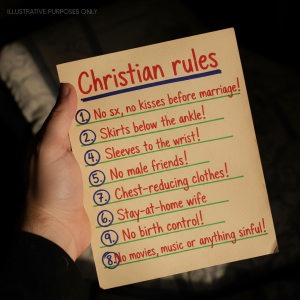 ILLUSTRATIVE PURPOSES ONLY
Christian rules
1. No sx, no kisses before marriage!
2. Skirts below the ankle!
4. Sleeves to the wrist!
5. No male friends!
7. Chest-reducing clothes!
6. Stay-at-home wife
9. No birth control!
8. No movies, music or anything sinful!